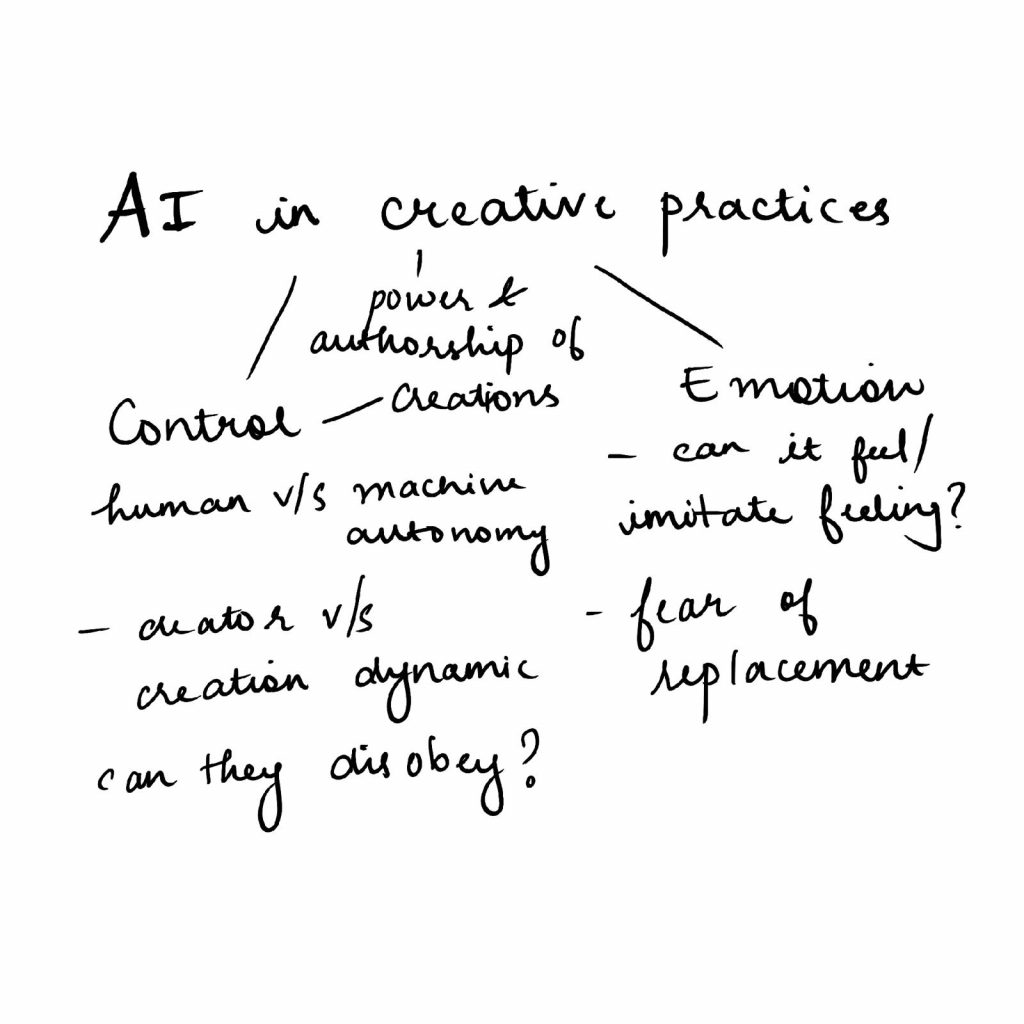 AI in creative practices
power &
authorship of
creations
Control
human v/s machine
autonomy
- creator v/s
creation dynamic
can they disobey?
Emotion
- can it feel/
imitate feeling?
- fear of
replacement